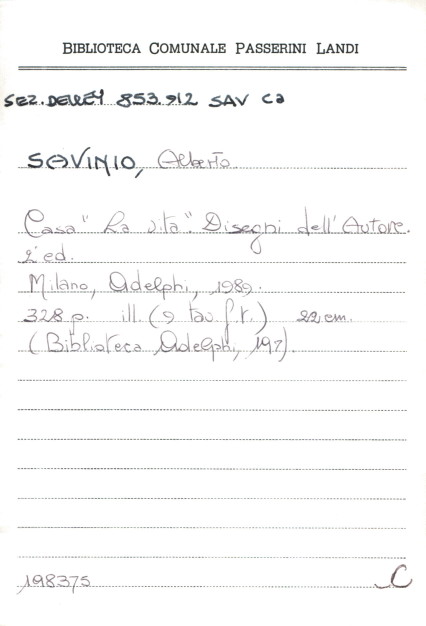 BIBLIOTECA COMUNALE PASSERINI LANDI
SEZ. DEWEY 853.912 SAV Ca
SAVINIO, Alberto
Casa "La vita". Disegni dell'Autore.
2ª ed.
Milano, Adelphi, 1989.
328 p. ill. (9 tav. f.t.) 22 cm.
(Biblioteca Adelphi, 197).
198375 C